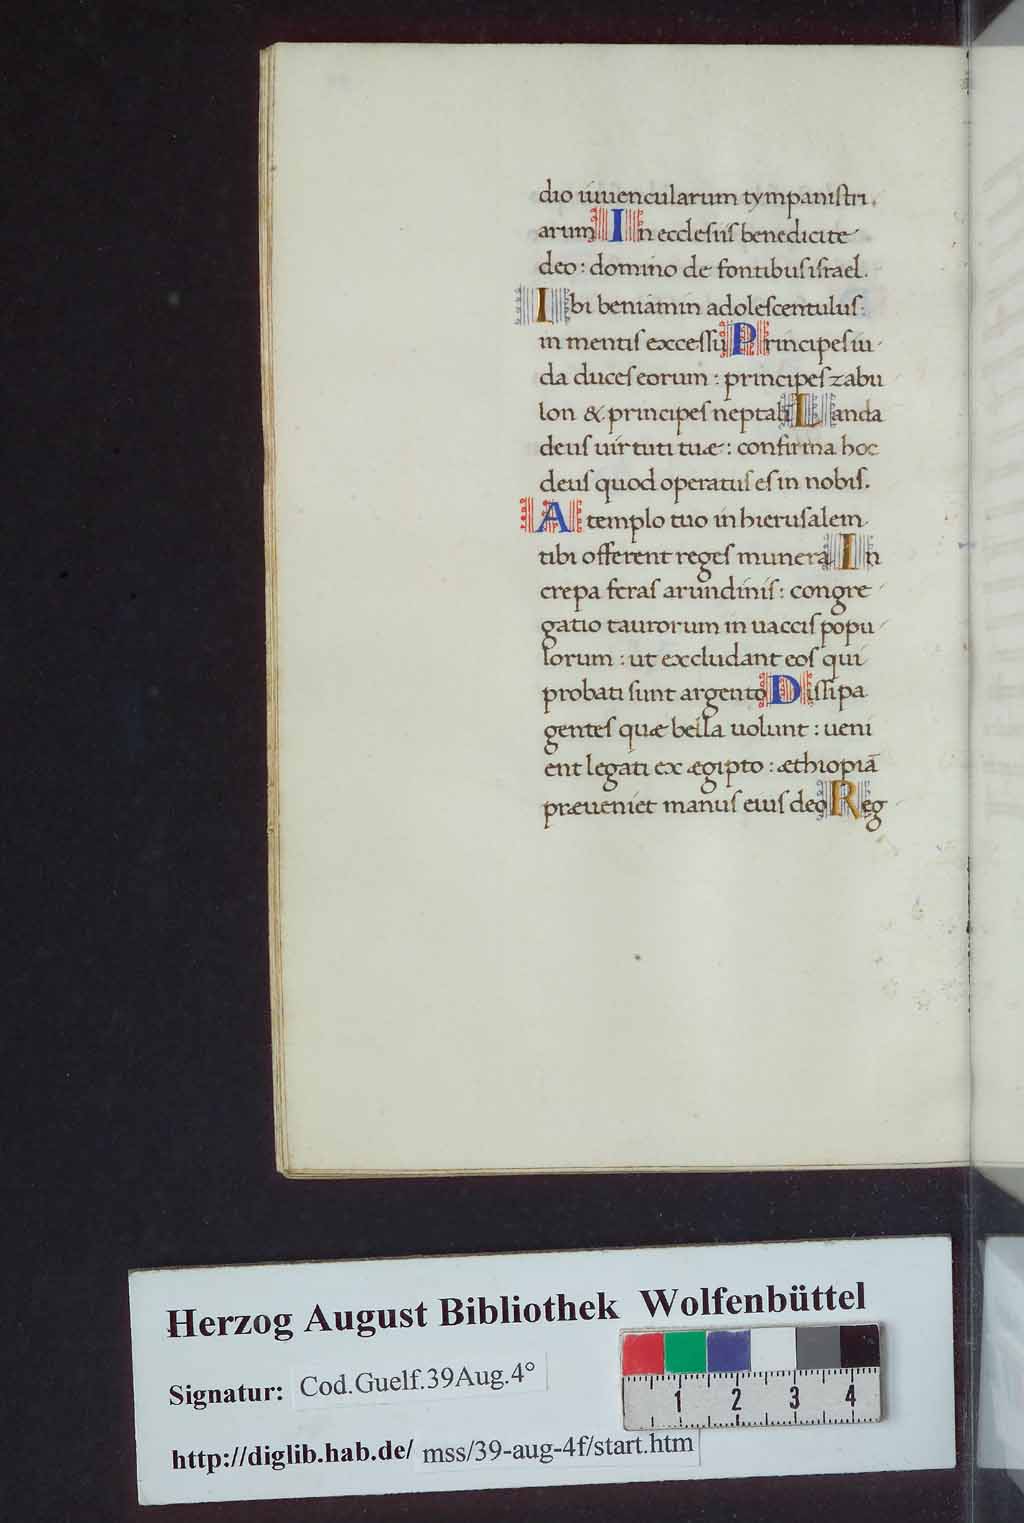 dio iuuencularum tympanistri
arum In ecclesiis benedicite
deo: domino de fontibus israel.
Ibi beniamin adolescentulus:
in mentis excessu Principes iu
da duces eorum: principes zabu
lon & principes neptali Manda
deus uirtuti tuæ: confirma hoc
deus quod operatus es in nobis.
A templo tuo in hierusalem
tibi offerent reges munera In
crepa feras arundinis: congre
gatio taurorum in uaccis popu
lorum: ut excludant eos qui
probati sunt argento Dissipa
gentes quæ bella uolunt: ueni
ent legati ex ægipto: æthiopiā
præueniet manus eius deo Reg
Herzog August Bibliothek Wolfenbüttel
Signatur: Cod.Guelf.39Aug.4°
http://diglib.hab.de/ mss/39-aug-4f/start.htm
1 2 3 4